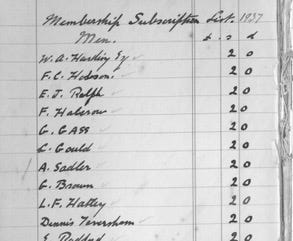 Membership Subscription List. 1937
Men. £ . s d
W. A. Hartley Esq 2 0
F. C. Hobson. 2 0
E. J. Ralph 2 0
F. 2 0
G. Gass 2 0
C. Gould 2 0
A. Sadler 2 0
G. Brown 2 0
L. F. Hattey 2 0
Dennis Feversham 2 0
2 0